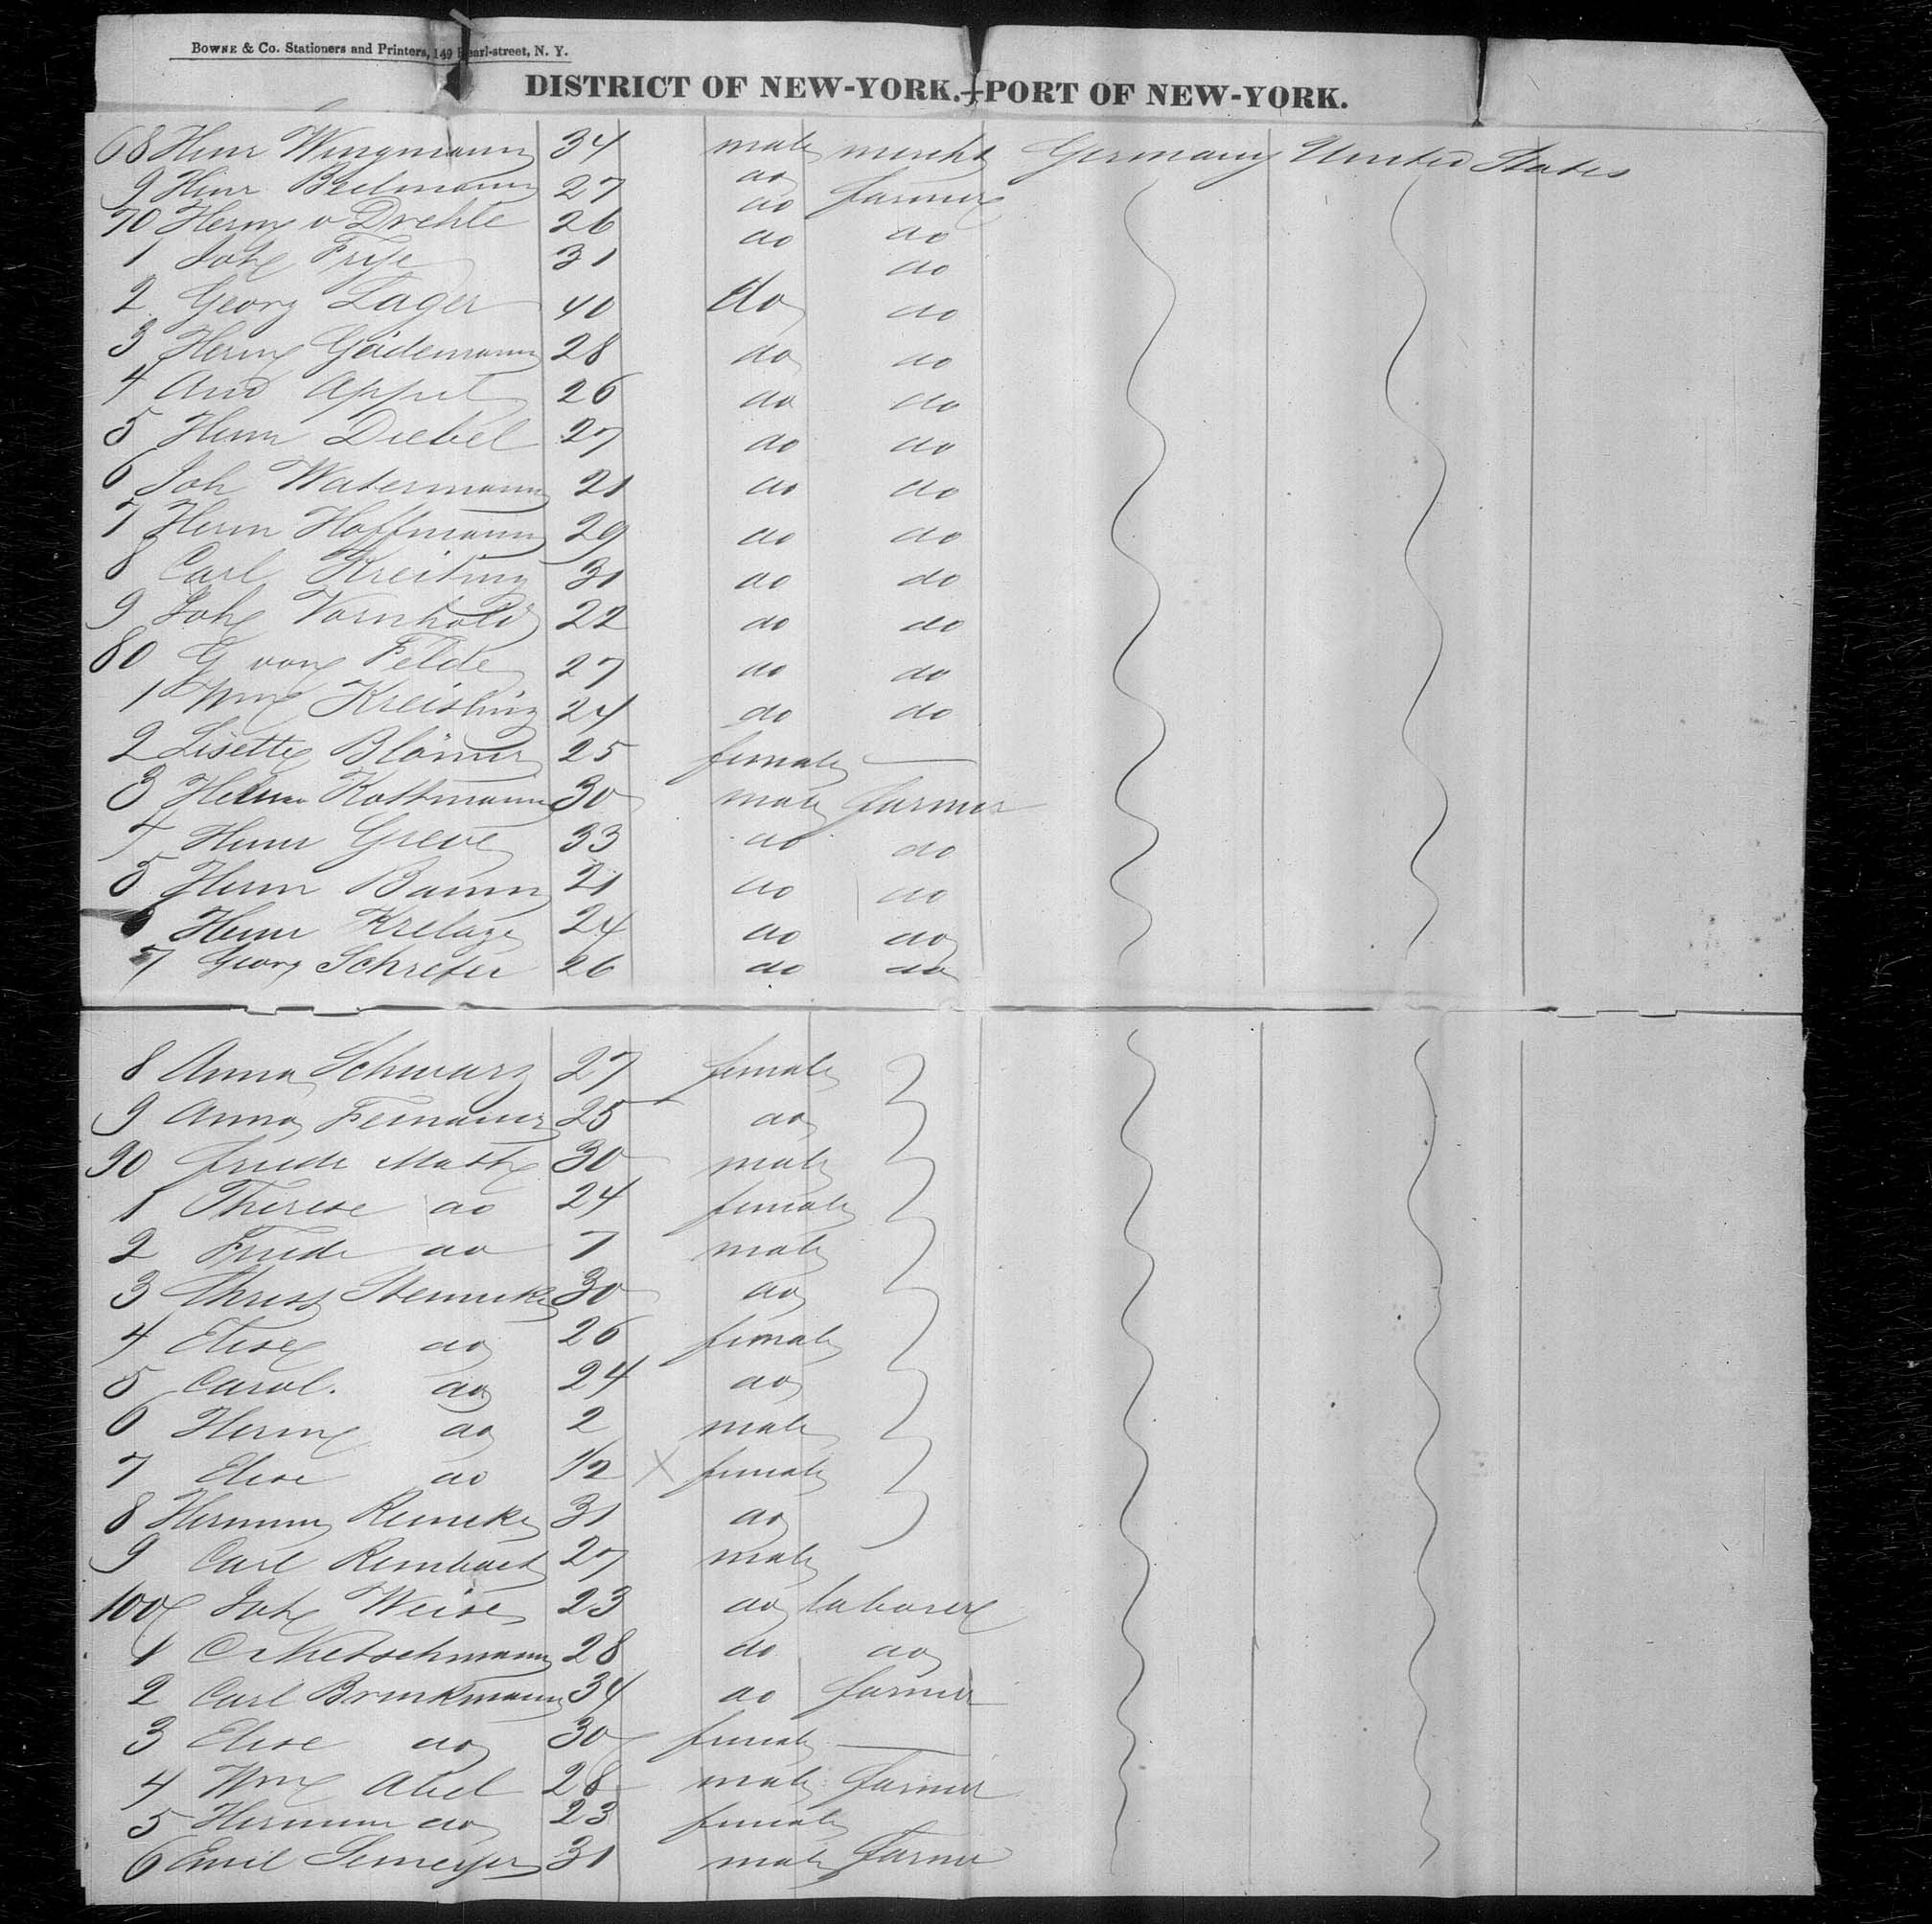 BOWNE & Co. Stationers and Printers, 149 Pearl-street, N. Y.
DISTRICT OF NEW-YORK.—PORT OF NEW-YORK.
68 Heinr Wingmann 34 male mercht Germany United States
9 Heinr Beilmann 27 do farmer
70 Herm v Drehle 26 do do
1 Joh Frye 31 do do
2 Georg Lager 40 do do
3 Herm Geidemann 28 do do
4 And Appel 26 do do
5 Heinr Diebel 27 do do
6 Joh Watermann 21 do do
7 Herm Hoffmann 29 do do
8 Carl Kreiting 31 do do
9 Joh Vornhold 22 do do
80 G von Felde 27 do do
1 Wm Kreisling 24 do do
2 Lisette Blömer 25 female —
3 Kottmann 30 male farmer
4 Heinr Greve 33 do do
5 Herm Baum 21 do do
6 Heinr Krelage 24 do do
7 Georg Schrefer 26 do do
8 Anna Schwarz 27 female
9 Anna 25 do
90 Friedr Math 30 male
1 Therese do 24 female
2 Friedr do 7 male
3 Christ Steinecke 30 do
4 Elise do 26 female
5 Carol. do 24 do
6 Herm do 2 male
7 Elise do 1/2 X female
8 Hermine Reineke 31 do
9 Carl 27 male
100 Joh Weise 23 do laborer
1 C Kretschmann 28 do do
2 Carl Brinkmann 34 do farmer
3 Elise do 30 female —
4 Wm Abel 28 male farmer
5 Hermine do 23 female
6 Emil 31 male farmer